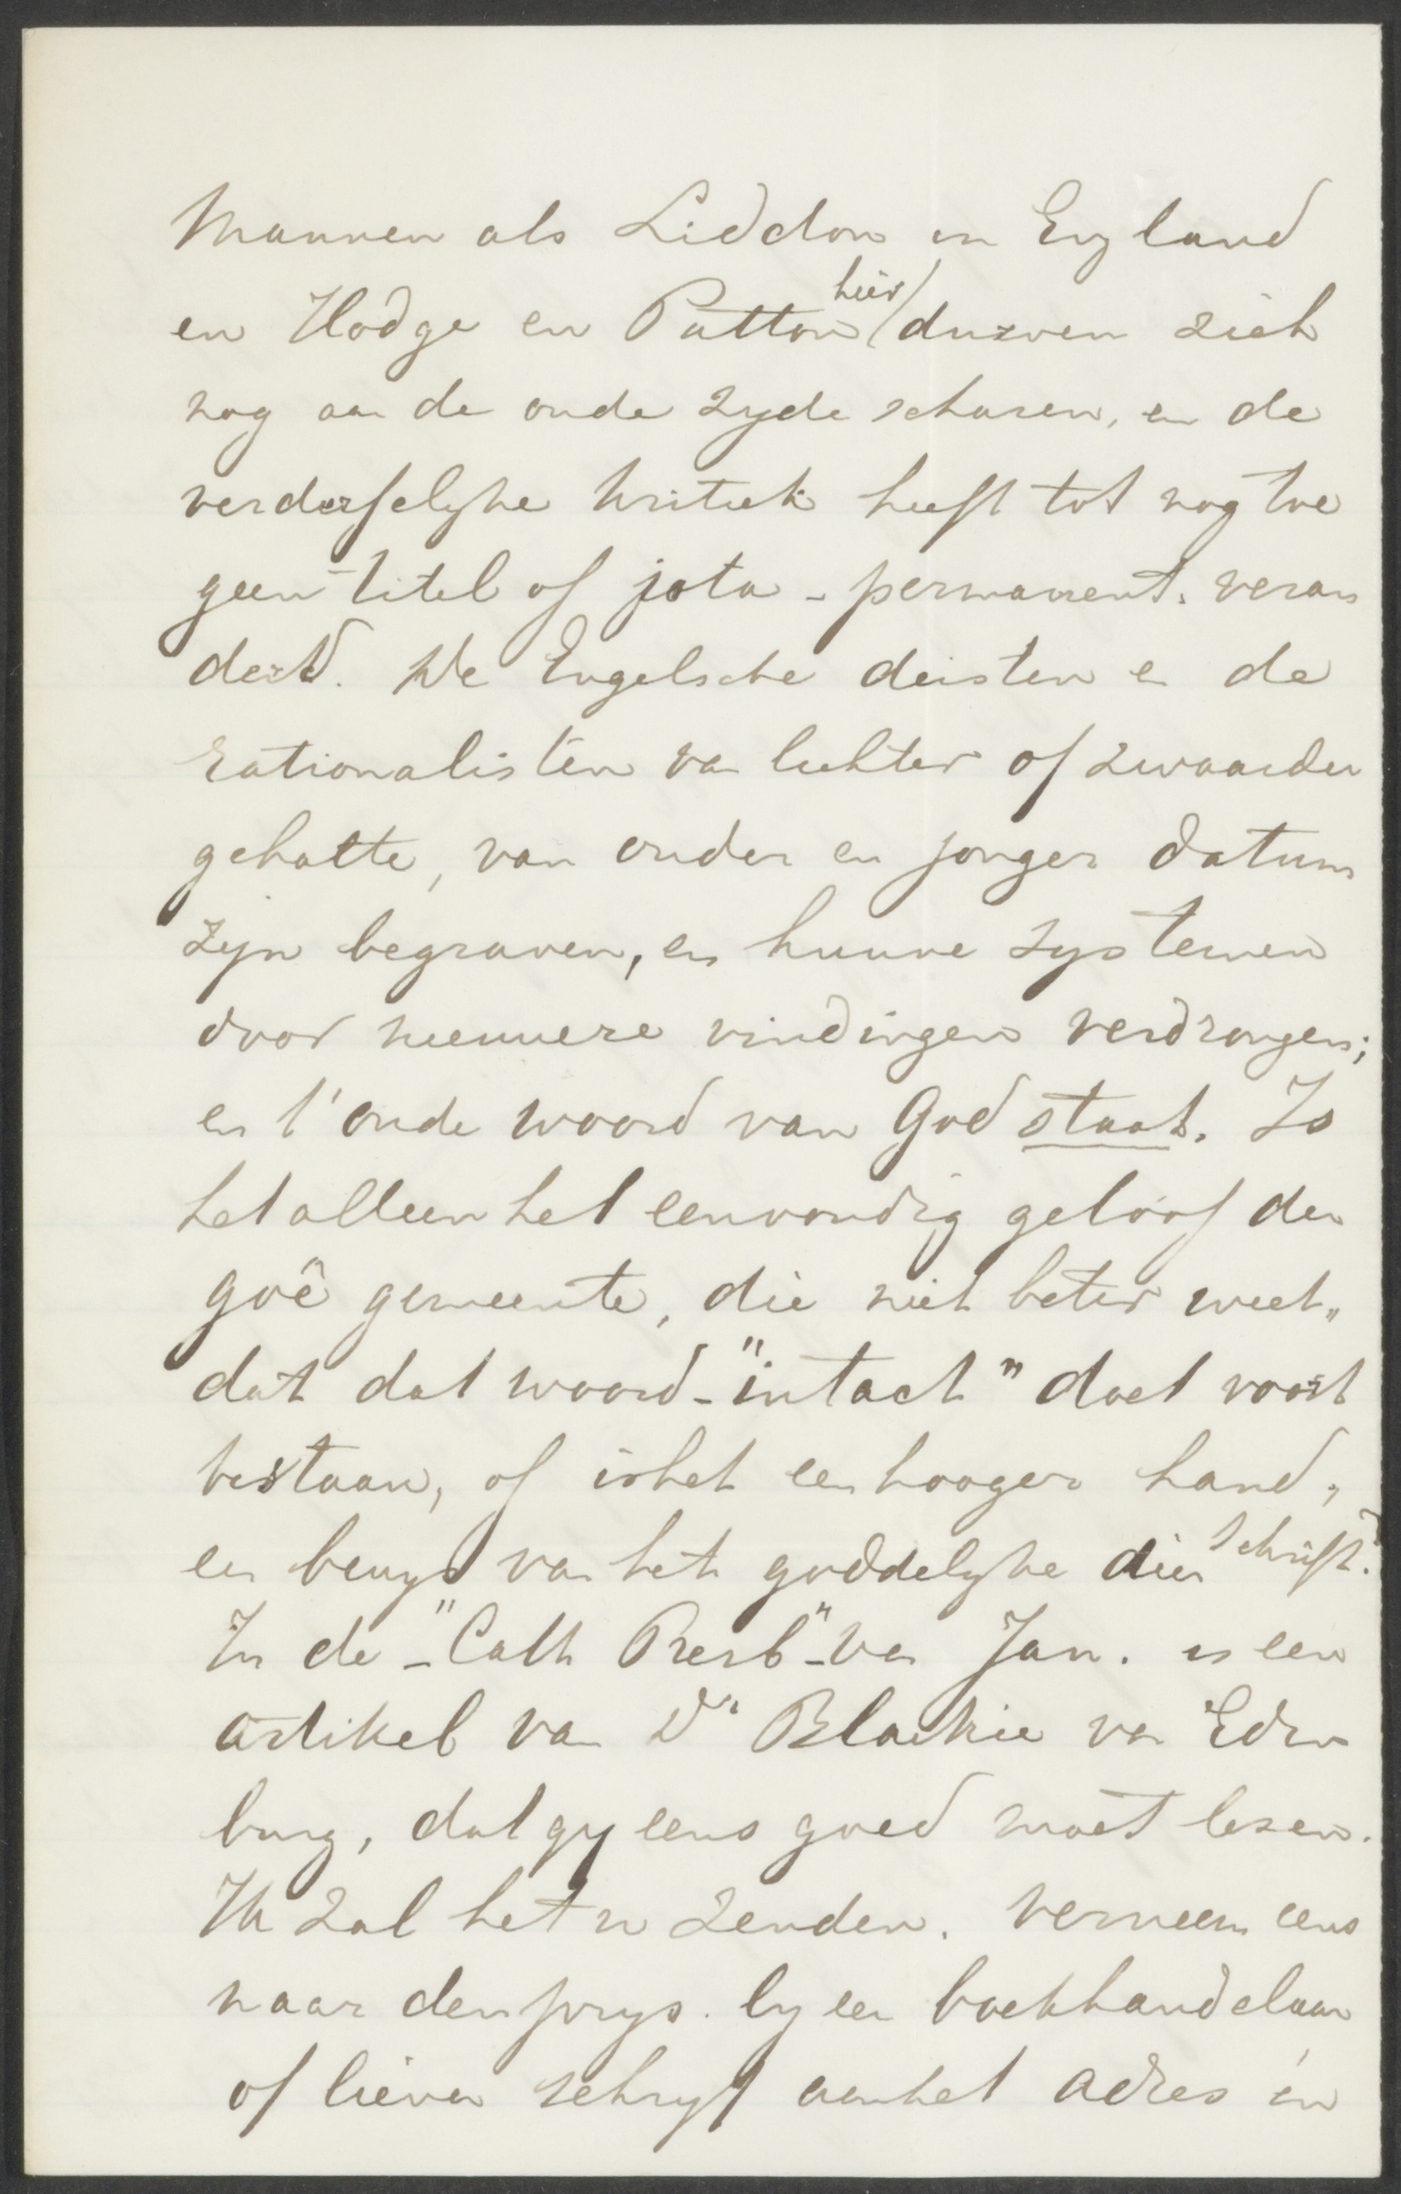 Mannen als Liddon in England
en Hodge en Patton hier durven zich
nog aan de oude zyde scharen, en de
verderfelyke kritiek heeft tot nog toe
geen titel of jota - permanent. veran
derd. De Engelsche deisten en de
rationalisten van lichter of zwaarder
gehalte, van ouder en jonger datum
zyn begraven, en hunne systemen
door nieuwere vindingen verdrongen;
en 't oude woord van God staat. Is
het alleen het eenvoudig geloof der
goê gemeente, die niet beter weet,,
dat dat woord - "intact" doet voort
bestaan, of is het een hooger hand,
een bewys van het goddelyke dier schrift?
In de - "Cath Presb" - van Jan. is een
artikel van Dr Blaikie van Edin
burg, dat gy eens goed moet lezen.
Ik zal het u zenden. Verneem eens
naar den prys. by een boekhandelaar
of liever schryf aan het adres in